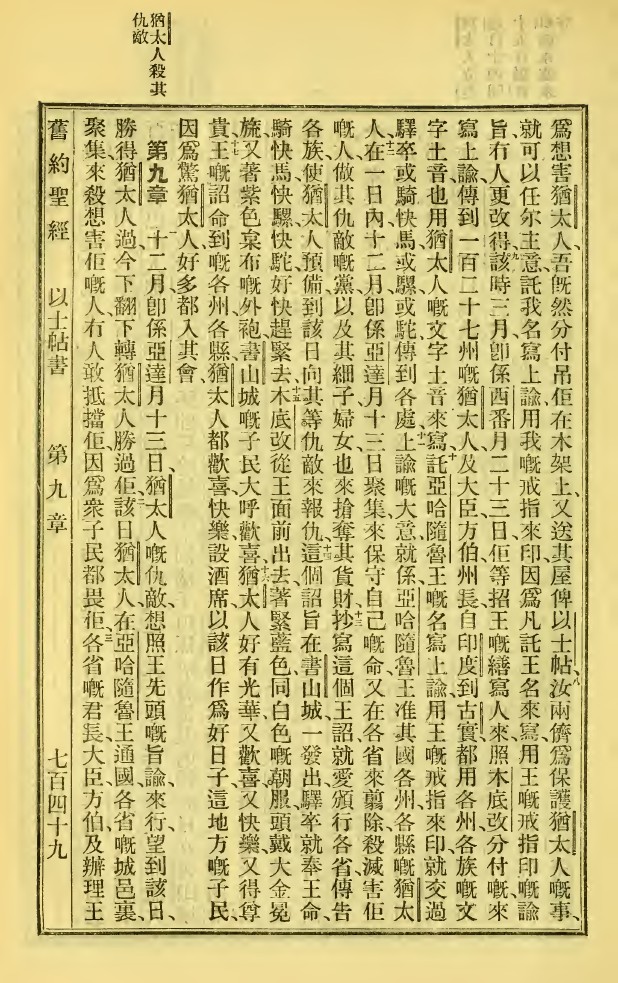 猶太人殺其
仇敵
爲想害猶太人、吾旣然分付吊佢在木架上、又送其屋俾以士帖、八汝兩儕爲保護猶太人嘅事、
就可以任尔主意、託我名寫上諭、用我嘅戒指來印、因爲凡託王名來寫、用王嘅戒指印嘅諭
旨、冇人更改得、九該時三月卽係西番月二十三日、佢等招王嘅繕寫人來、照木底改分付嘅、來
寫上諭、傳到一百二十七州嘅猶太人、及大臣方伯州長、自印度到古實、都用各州各族嘅文
字土音、也用猶太人嘅文字土音來寫、十託亞哈隨魯王嘅名寫上諭、用王嘅戒指來印、就交過
驛卒、或騎快馬、或騾或駝、傳到各處、十一上諭嘅大意、就係亞哈隨魯王准其國各州各縣嘅猶太
人、十二在一日內、十二月卽係亞達月十三日、聚集來保守自己嘅命、又在各省來翦除殺滅害佢
嘅人、做其仇敵嘅黨、以及其細子婦女、也來搶奪其貨財、十三抄寫這個王詔、就愛頒行各省、傳告
各族、使猶太人預備到該日、向其等仇敵來報仇、十四這個詔旨在書山城一發出、驛卒就奉王命、
騎快馬快騾快駝、好快趕緊去、十五木底改從王面前出去、著緊藍色同白色嘅朝服、頭戴大金冕
旒、又著紫色枲布嘅外袍、書山城嘅子民大呼歡喜、十六猶太人好有光華、又歡喜、又快樂、又得尊
貴、十七王嘅詔命到嘅各州各縣、猶太人都歡喜快樂、設酒席、以該日作爲好日子、這地方嘅子民、
因爲驚猶太人、好多都入其會、
第九章 一十二月卽係亞達月十三日、猶太人嘅仇敵、想照王先頭嘅旨諭來行、望到該日、
勝得猶太人過、今下翻下轉、猶太人勝過佢、二該日猶太人、在亞哈隨魯王通國各省嘅城邑裏、
聚集來殺想害佢嘅人、冇人敢抵擋佢、因爲衆子民都畏佢、三各省嘅君長、大臣方伯、及辦理王
舊約聖經 以士帖書 第九章 七百四十九